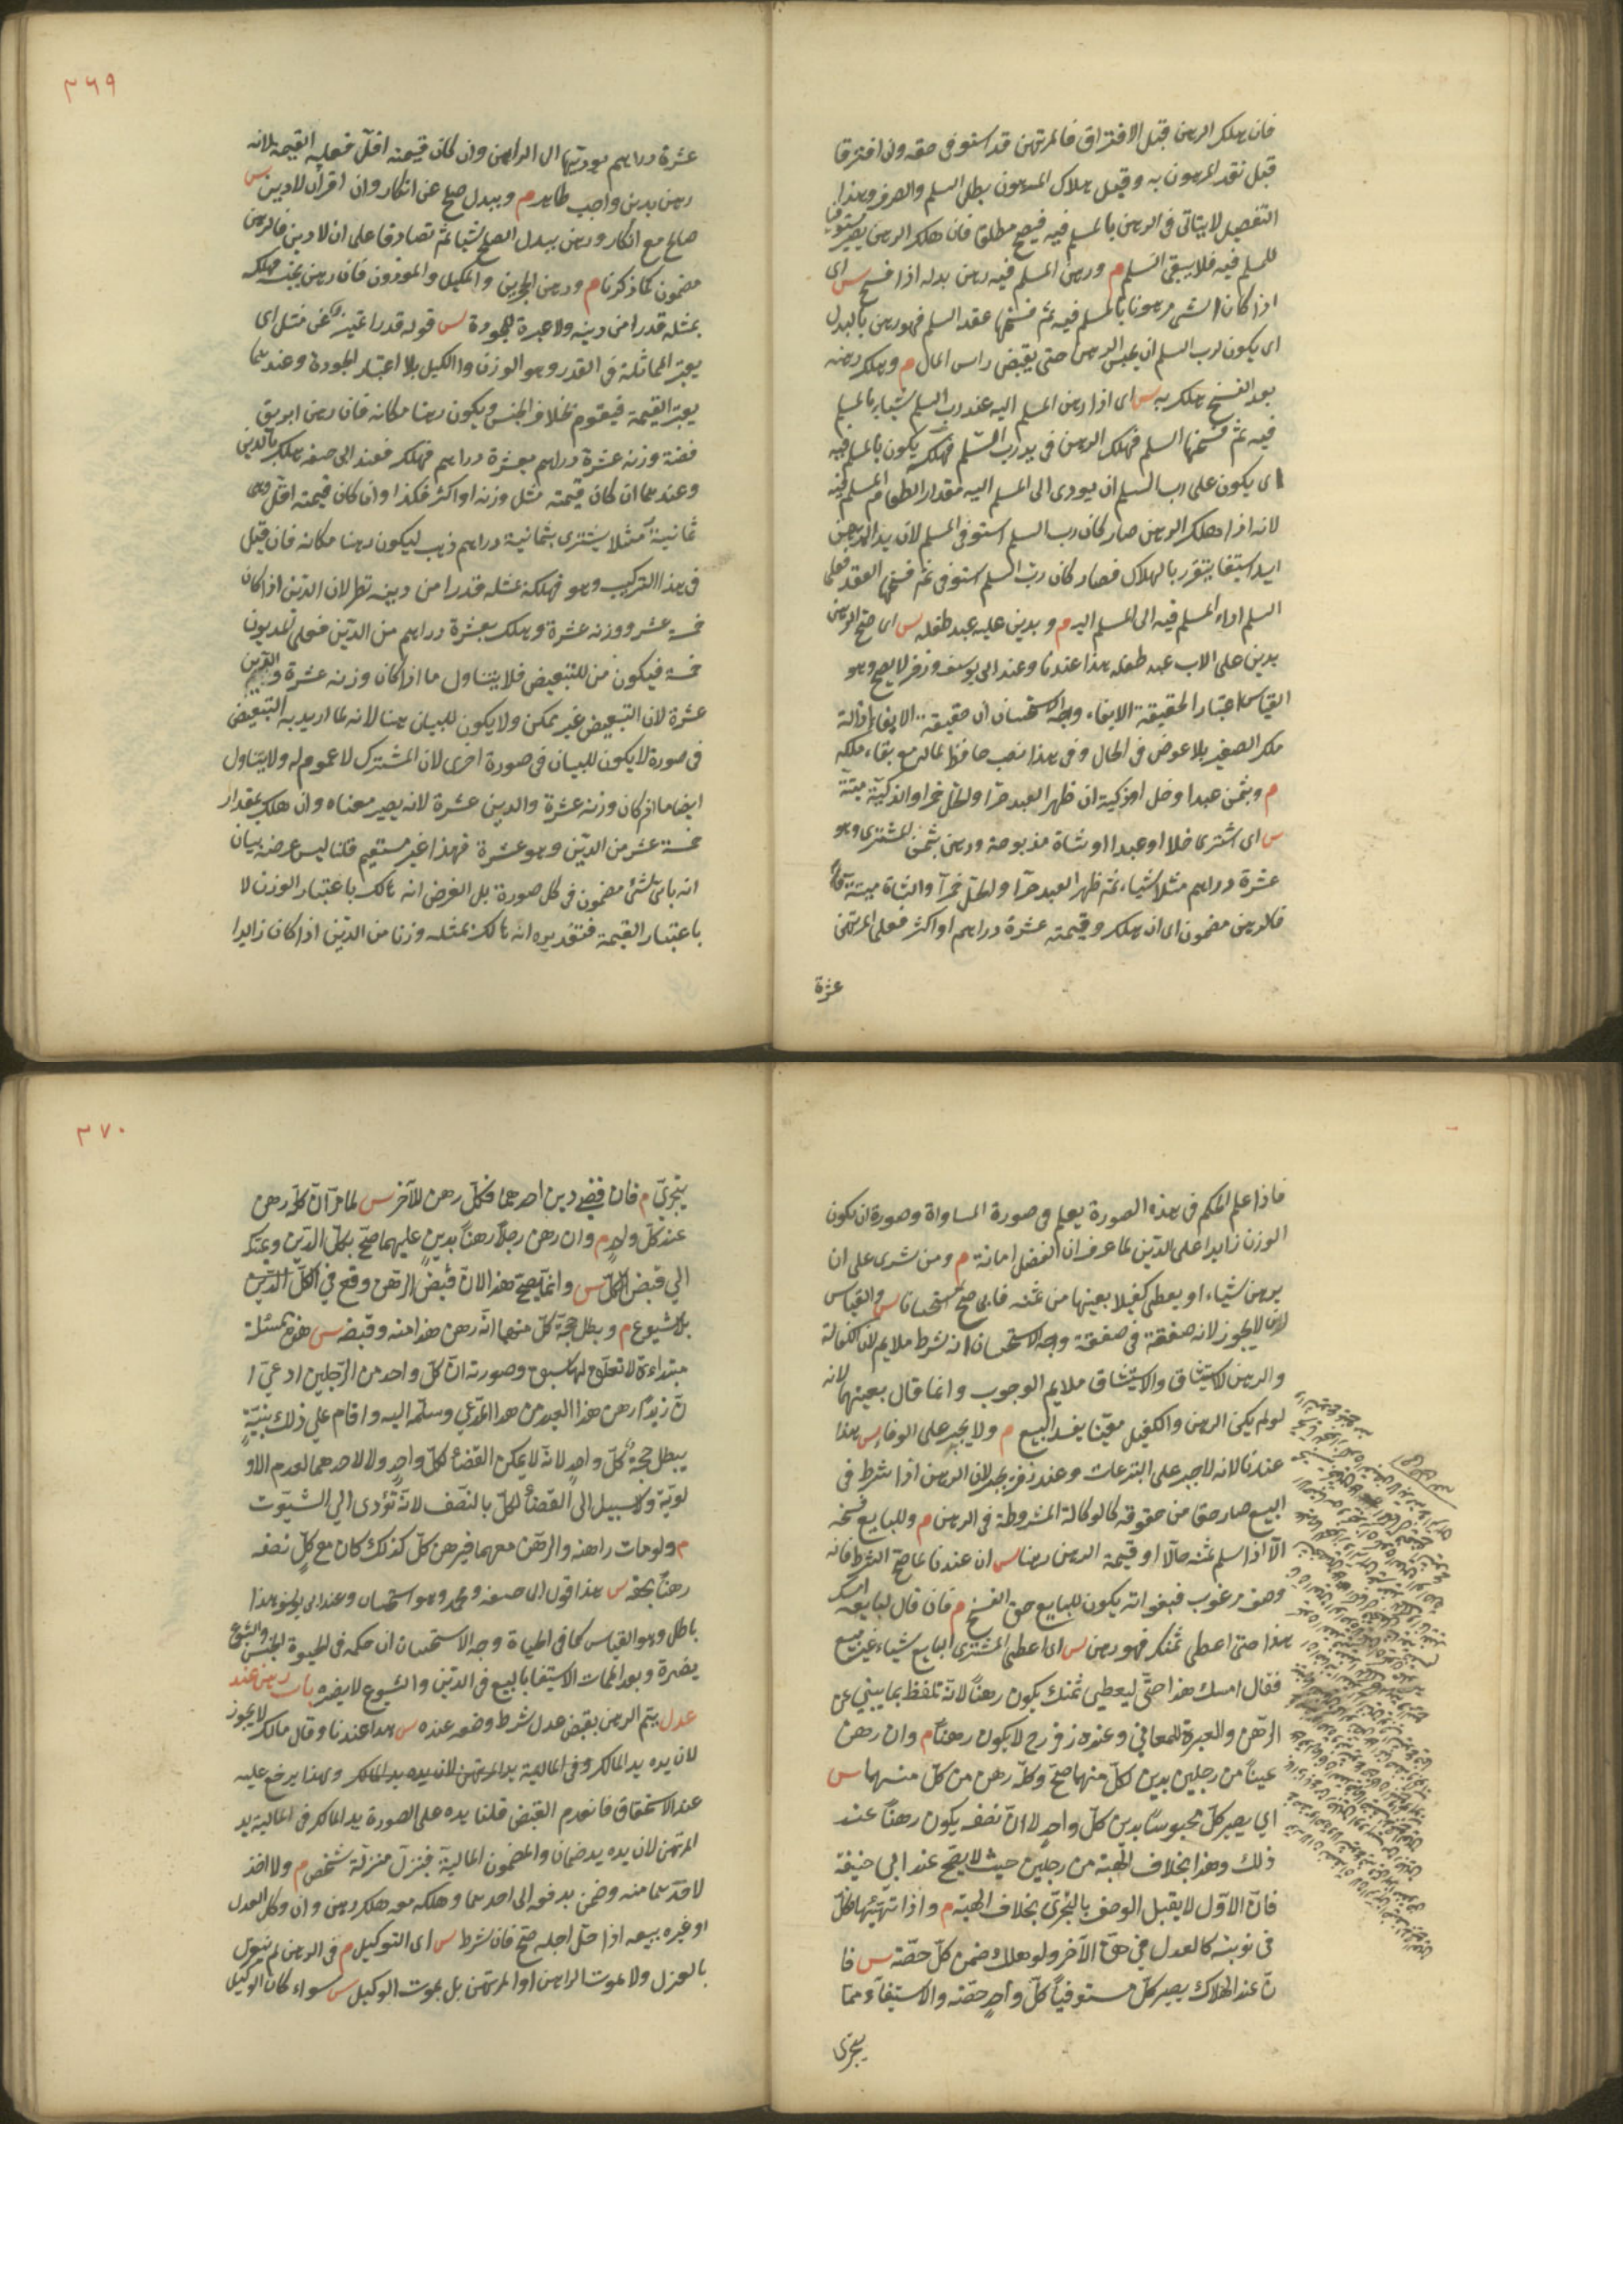 فان هلك الرهن قبل الافتراق فالمرتهن قد استوفى حقه وان افترقا
قبل نقد المرهون به وقبل هلاك المرهون بطل السلم والصرف وهذا
التفصيل لا يتاتى فى الرهن بالمسلم فيه فيصح مطلقا فان هلك الرهن يصير مستوفيا
للمسلم فيه فلا يبقى السلم م ورهن المسلم فيه رهن ببدله اذا فسخ س اى
اذا كان الشى مرهونا بالمسلم فيه ثم فسخا عقد السلم فهو رهن بالبدل
اى يكون لرب السلم ان يحبس الرهن حتى يقبض راس المال م وهلك رهنه
بعد الفسخ هلك به س اى اذا رهن المسلم اليه عند رب السلم شياء بالمسلم
فيه ثم فسخا السلم فهلك الرهن فى يد رب السلم فهلكه يكون بالمسلم فيه
اى يكون على رب السلم ان يودى الى المسلم اليه مقدار الطعام المسلم فيه
لانه اذا هلك الرهن صار كان رب السلم استوفى المسلم لان يد المرتهن
يد استيفا يتقرر بالهلاك فصار كان رب السلم استوفى ثم فسخا العقد فعلى
السلم اداء المسلم فيه الى المسلم اليه م وبدين عليه عبد طفله س اى صح الرهن
بدين على الاب عبد طفله هذا عندنا وعند ابى يوسف وزفر لا يصح وهو
القياس اعتبار الحقيقة الايفاء وجه الاستحسان ان حقيقة الايفاء ازالة
ملك الصغير بلا عوض فى الحال وفى هذا نصب حافظ لماله مع بقاء ملكه
م وبثمن عبد او خل او ذكية ان ظهر العبد حرا والخل خمرا والذكية ميتة
س اى اشترى خلا او عبدا او شاة مذبوحة ورهن بثمن المشترى وهو
عشرة دراهم مثلا شياء ثم ظهر العبد حرا والخل خمرا والشاة ميتة
فالرهن مضمون اى ان هلك وقيمته عشرة دراهم او اكثر فعلى المرتهن
عشرة
٣٦٩
عشرة دراهم يوديها الى الراهن وان كان قيمته اقل فعليه القيمة لانه
رهن بدين واجب ظاهر م وببدل صلح عن انكار وان اقر ان لا دين س
صالح مع انكار ورهن ببدل الصلح شيا ثم تصادقا على ان لا دين فالرهن
مضمون كما ذكرنا م ورهن الحجرين والمكيل والموزون فان رهن بجنسه فهلكه
بمثله قدرا من دينه ولا عبرة للجودة س قوله قدرا تميز عن مثله اى
يعتبر المماثلة فى القدر وهو الوزن والكيل بلا اعتبار الجودة وعندهما
يعتبر القيمة فيقوم بخلاف الجنس ويكون رهنا مكانه فان رهن ابريق
فضة وزنه عشرة دراهم بعشرة دراهم فهلك فعند ابى حنيفه هلك بالدين
وعندهما ان كان قيمته مثل وزنه او اكثر فكذا وان كان قيمته اقل وهى
ثمانية مثلا يشترى بثمانية دراهم ذهب ليكون رهنا مكانه فان قيل
فى هذا التركيب وهو فهلكه بمثله قدرا من دينه نظر لان الدين اذا كان
خمسة عشر ووزنه عشرة وهلك بعشرة دراهم من الدين فعلى المديون
خمسة فيكون من للتبعيض فلا يتناول ما اذا كان وزنه عشرة والدين
عشرة لان التبعيض غير ممكن ولا يكون للبيان هنا لانه لما اريد به التبعيض
فى صورة لا يكون للبيان فى صورة اخرى لان المشترك لا عموم له ولا يتناول
ايضا ما اذا كان وزنه عشرة والدين عشرة لانه يصير معناه وان هلك بمقدار
خمسة عشر من الدين وهو عشرة فهذا غير مستقيم قلنا ليس غرضه بيان
انه باى شئ مضمون فى كل صورة بل الغرض انه هالك باعتبار الوزن لا
باعتبار القيمة فتقديره انه هالك بمثله وزنا من الدين اذا كان زايدا
فاذا علم الحكم فى هذه الصورة يعلم فى صورة المساواة وصورة ان يكون
الوزن زايدا على الدين لما عرف ان الفضل امانة م ومن شرى على ان
يرهن شياء او يعطى كفيلا بعينها من ثمنه فابى صح استحسانا س والقياس
ان لا يجوز لانه صفقة فى صفقة وجه الاستحسان انه شرط ملايم لان الكفالة
والرهن للاستيثاق والاستيثاق ملايم الوجوب وانما قال بعينهما لانه
لو لم يكن الرهن والكفيل معينا يفسد البيع م ولا يجبر على الوفا س هذا
عندنا لانه لا جبر على التبرعات وعند زفر يجبر لان الرهن اذا شرط فى
البيع صار حقا من حقوقه كالوكالة المشروطة فى الرهن م وللبايع فسخه
الا اذا سلم ثمنه حالا او قيمة الرهن رهنا س ان عندنا لما صح الشرط فانه
وصف مرغوب فبفواته يكون للبايع حق الفسخ م فان قال لبايعه امسك
هذا حتى اعطى ثمنك فهو رهن س اى اعطى المشترى البايع شياء غير مبيع
فقال امسك هذا حتى ليعطي ثمنك يكون رهناً لانه تلفظ بما يبني عن
الرهن والعبرة للمعاني وعنده زفر رح لا يكون رهناً م وان رهن
عيناً من رجلين بدين لكل منهما صح وكله رهن من كل منهما س
اي يصير كل محبوساً بدين كل واحد لا ان نصفه يكون رهناً عند
ذلك وهذا بخلاف الهبة من رجلين حيث لا يصح عند ابي حنيفة
فان الاول لا يقبل الوصف بالتجزى بخلاف الهبة م واذا تهيئا فكل
في نوبته كالعدل في حق الآخر ولو هلك ضمن كل حصته س فا
ن عند الهلاك يصير كل مستوفياً كل واحد حصته والاستيفاء مما
يتجزى
٣٧٠
يتجزى م فان قضى دين احدهما فكل رهن للآخر س لما مر ان كله رهن
عند كل واحد م وان رهن رجلاً رهناً بدين عليهما صح بكل الدين ويمسك
الي قبض الكل س وانما يصح هذا لان قبض الرهن وقع في الكل الدين
بلا شيوع م وبطل حجة كل منهما انه رهن هذا منه وقبضه س هذه مسئلة
مبتداءة لا تعلق لها بما سبق وصورته ان كل واحد من الرجلين ادعي ا
ن زيداً رهن هذا العبد من هذا المدعي وسلمه اليه واقام علي ذلك بنيةٍ
يبطل حجة كل واحد لانه لا يمكن القضاء لكل واحد ولا لاحدهما لعدم الاو
لوية ولا سبيل الى القضاء لكل بالنصف لانه تؤدى الي الشيوت
م ولو مات راهنه والرهن معهما فرهن كل كذلك كان مع كل نصفه
رهناً بحقه س هذا قول ابى حنيفه ومحمد وهو استحسان وعند ابى يوسف هذا
باطل وهو القياس كما فى الحياة وجه الاستحسان ان حكمه فى الحيوة الحبس والشيوع
يضره وبعد الممات الاستيفا بالبيع فى الدين والشيوع لا يضره باب رهن عند
عدل يتم الرهن بقبض عدل شرط وضعه عنده س هذا عندنا وقال مالك لا يجوز
لان يده يد المالك وفى المالية يد المرتهن لان يده يد المالك ولهذا يرجع عليه
عند الاستحقاق فانعدم القبض قلنا يده على الصورة يد المالك فى المالية يد
المرتهن لان يده يد ضمان والمضمون المالية فنزل منزلة شخص م ولا اخذ
لاحدهما منه وضمن بدفعه الى احدهما وهلكه معه هلك رهن وان وكل العدل
او غيره ببيعه اذا حل اجله صح فان شرط س اى التوكيل م فى الرهن لم ينعزل
بالعزل ولا بموت الراهن او المرتهن بل بموت الوكيل س سواء كان الوكيل